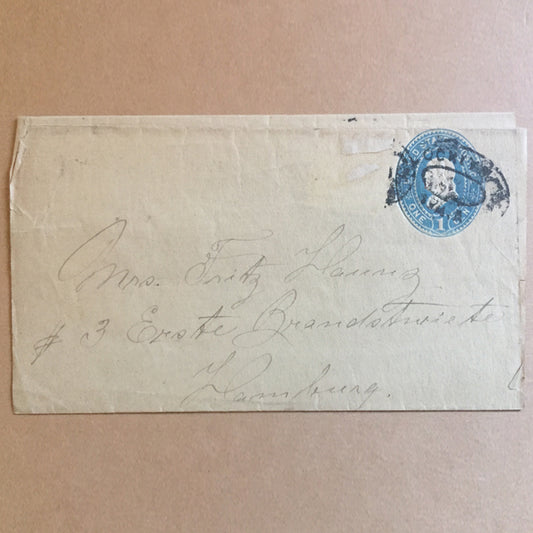 ONE 1
Mrs. Fritz Haung
# 3 Erste Brandstwiete
Hamburg.